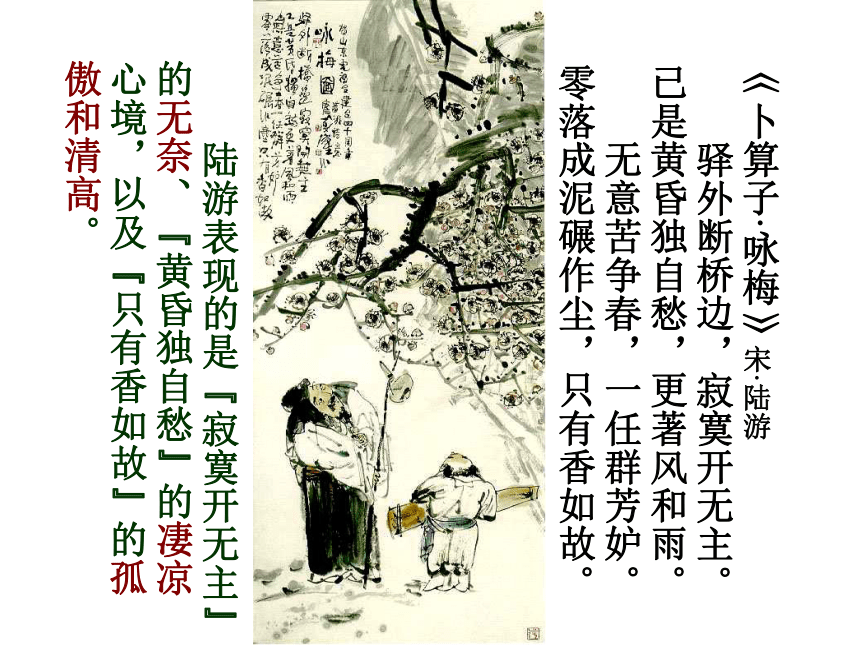 《卜算子·咏梅》宋·陆游
驿外断桥边，寂寞开无主。
已是黄昏独自愁，更著风和雨。
无意苦争春，一任群芳妒。
零落成泥碾作尘，只有香如故。
咏梅圖
陆游表现的是『寂寞开无主』
的无奈、『黄昏独自愁』的凄凉
心境，以及『只有香如故』的孤
傲和清高。